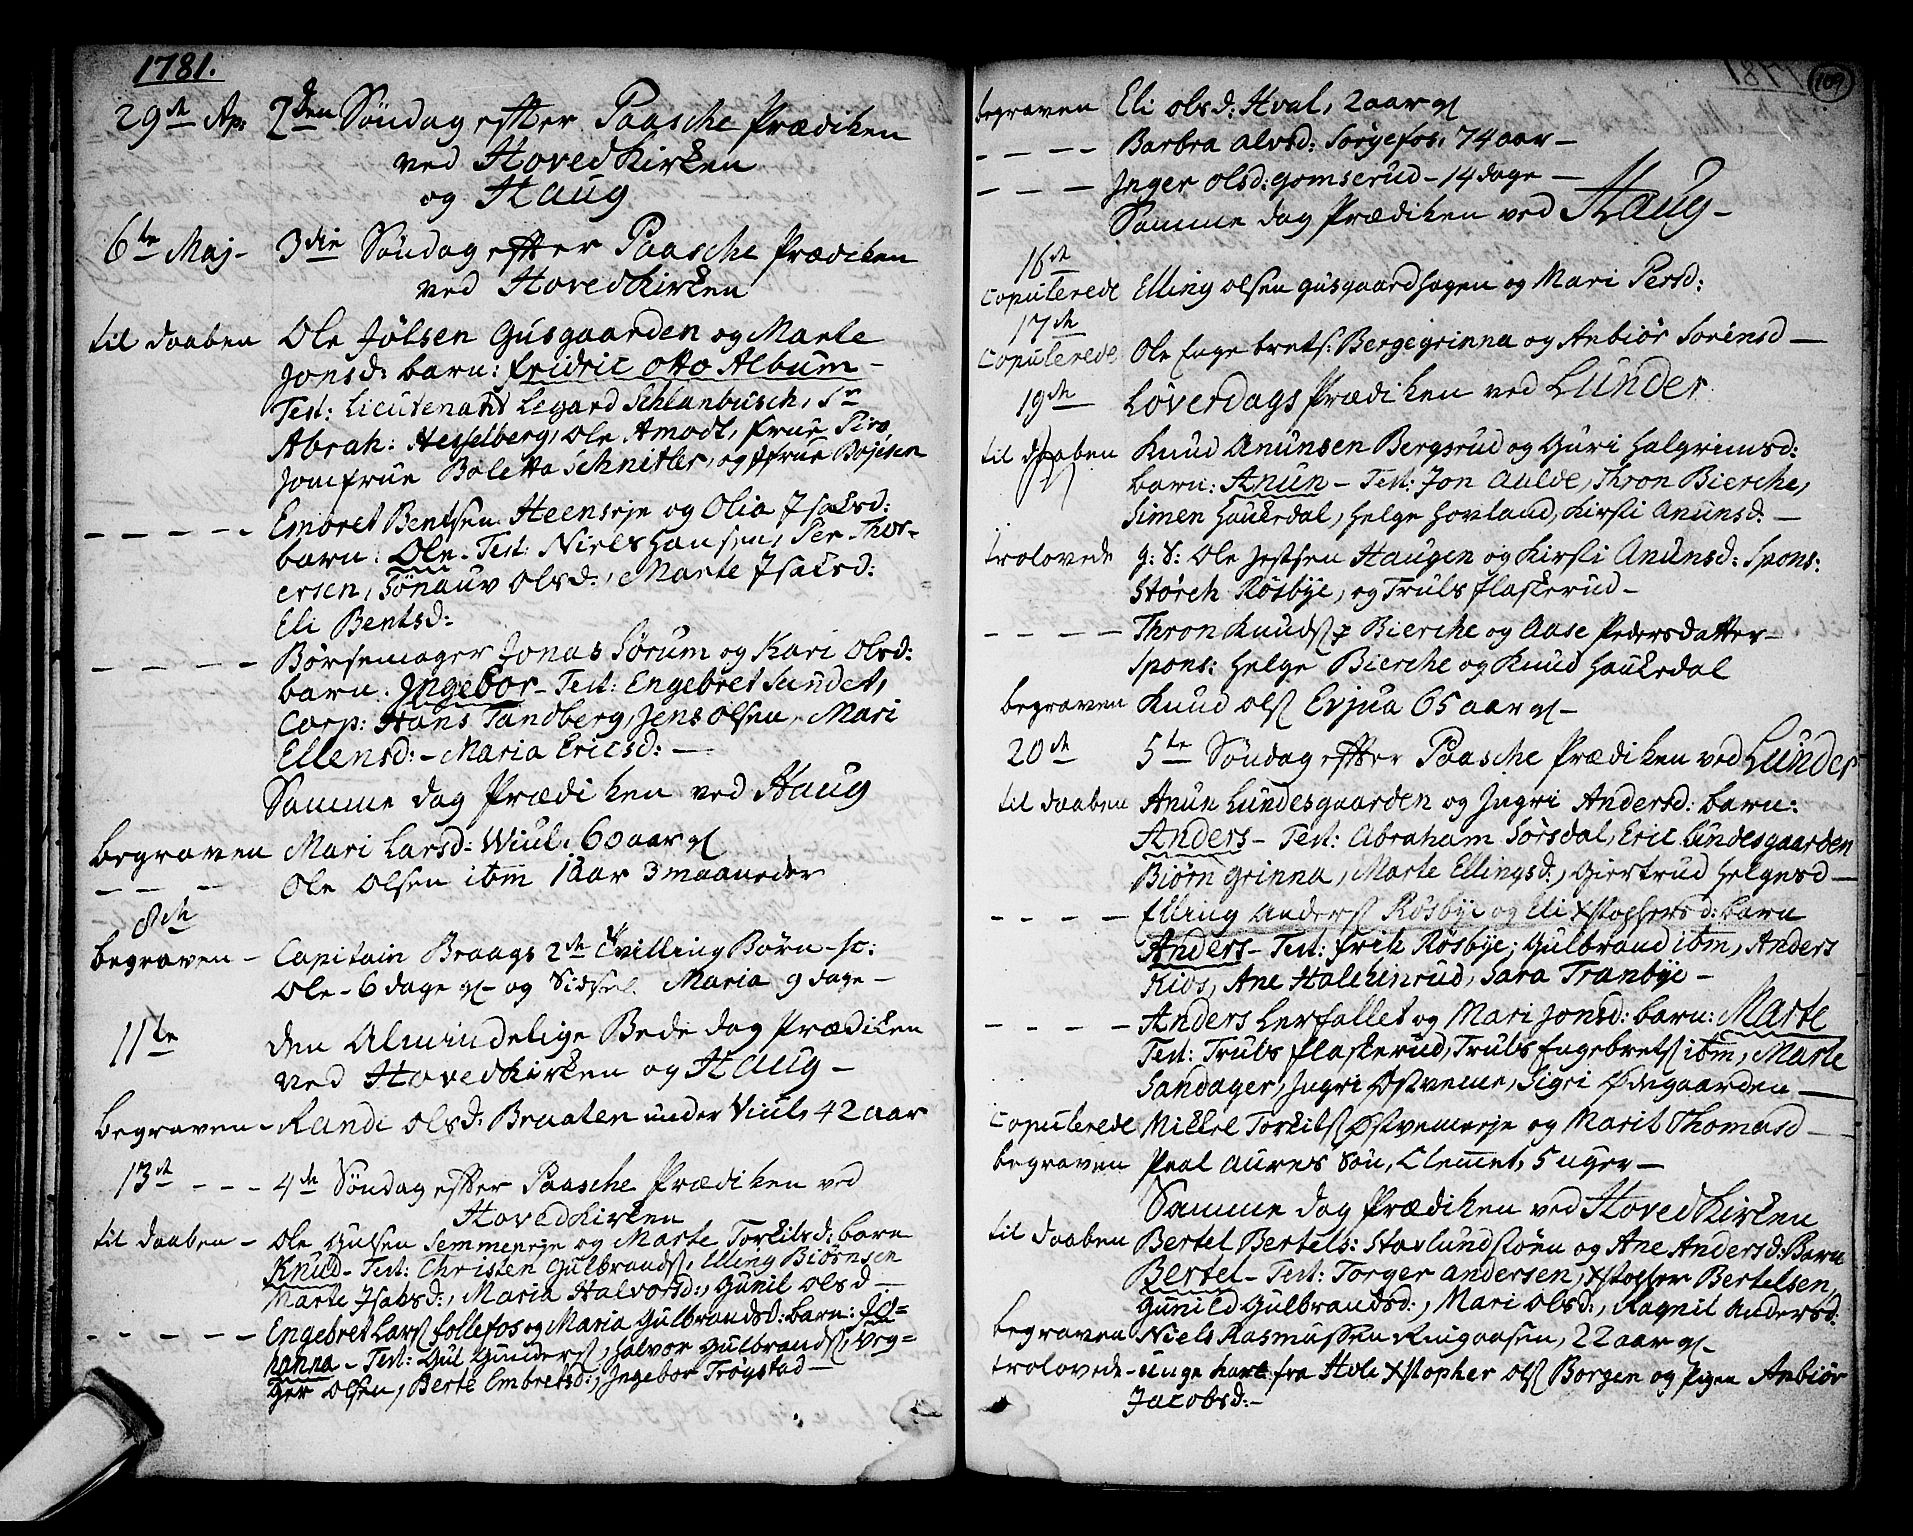 1781.
29de Ap: 2den Søndag efter Paasche Prædiken
ved HovedKirken
og Haug
6te Maj- 3die Søndag efter Paasche Prædiken
ved HovedKirken
til daaben Ole Jølsen Gusgaarden og Marte
Jonsd: barn: fridric otto Album-
Test: Lieutenant Legard Schlanbusch, Sr
Abrah: Hesselberg, Ole Amodt, frue Piro,
Jomfrue Boletta Schnitler, og frue Bojesen
- - - - Emoret Bentsen Heenseje og Olia Isaksd:
barn: Ole- Test: Niels Hansen, Per Thor-
ersen, Sønauv Olsd:, Marte Isaksd:
Eli Bentsd:
- - - - Børsemager Jonas Sørum og Kari Olsd:
barn: Ingebor- Test: Engebret Sundet,
Corp: Hans Tandberg, Jens Olsen, Mari
Ellensd:- Maria Ericsd: -
Samme dag Prædiken ved Haug
begraven Mari Larsd: Wiul, 60 aar gl
- - - Ole Olsen ibm 1 aar 3 maaneder
8de
begraven - Capitain Braags 2de Tvilling Børn- sc:
Ole- 6 dage gl- og Sidsel Maria 9 dage-
11te den Almindelige Bede dag Prædiken
ved HovedKirken og Haug-
begraven- Randi Olsd: Braaten under Viul, 42 aar
13de - - - 4de Søndag efter Paasche Prædiken ved
HovedKirken
til daaben- Ole Gulsen Semmeneje og Marte Torkilsd: barn
Knud- Test: Christen Gulbrands:, Elling Biørnsen
Marte Isaksd:, Maria Halvorsd:, Gunil Olsd-
- - - - - Engebret Lars: follefos og Maria Gulbrandsd: barn: Jo-
hanna- Test: Gul Gunders:, Halvor Gulbrands:, Veg-
ger Olsen, Berte Embretsd:, Ingebor Trøgstad-
109
begraven Eli Olsd: Hval, 2 aar gl
- - - - Barbra Alvsd: Sørgefos, 74 aar-
- - - Inger Olsd: Gomserud- 14 dage-
Samme dag Prædiken ved Haug-
16de
Copulerede Elling Olsen Gusgaardhagen og Mari Persd:
17de
Copulerede Ole Engebrets: Bergegrinna og Anbiør Sørensd-
19de Løverdags Prædiken ved Lunder
til daaben Knud Anunsen Bergsrud og Guri Halgrimsd:
barn: Anun- Test: Jon Aulde, Thron Bierche,
Simen Haukedal, Helge Hovland, Kirsti Anunsd:-
trolovede g: S: Ole Jestsen Haugen og Kirsti Anunsd: Spons:
Størch Røsbye, og Truls flaskerud-
- - - - Thron Knuds: Bierche og Aase Pedersdatter-
Spons: Helge Bierche og Knud Haukedal
begraven Knud Ols: Evjua 65 aar gl-
20de 5te Søndag efter Paasche Prædiken ved Lunder
til daaben Anun Lundesgaarden og Ingri Andersd: barn:
Anders- Test: Abraham Sørsdal, Eric Lundesgaarden
Biørn Grinna, Marte Ellingsd:, Giertrud Helgesd-
- - - - Elling Anders: Røsbye og Eli Xstophersd: barn
Anders- Test: frik Røsbye; Gulbrand ibm, Anders
Kios, Ane Halchinrud, Sara Tranbye-
- - - - Anders Lerfallet og Mari Jonsd: barn: Marte
Test: Truls flaskerud, Truls Engebrets: ibm, Marte
Sandager, Ingri Østveme, Sigri Ødegaarden-
Copulerede Mickel Torkils: Østvemeeje og Marit Thomasd-
begraven Peal Aures Søn, Clemet, 5 uger-
Samme dag Prædiken ved HovedKirken
til daaben Bertel Bertels: Stavlundstøen og Ane Andersd: Barn
Bertel- Test: Torger Andersen, Xstopher Bertelsen,
Gunild Gulbrandsd:, Mari Olsd:, Ragnil Andersd:
begraven Niels Rasmussen Ringaasen, 22 aar gl-
trolovede- unge Karl fra Hole Xstopher Ols: Borgen og Pigen Anbiør
Jacobsd:-